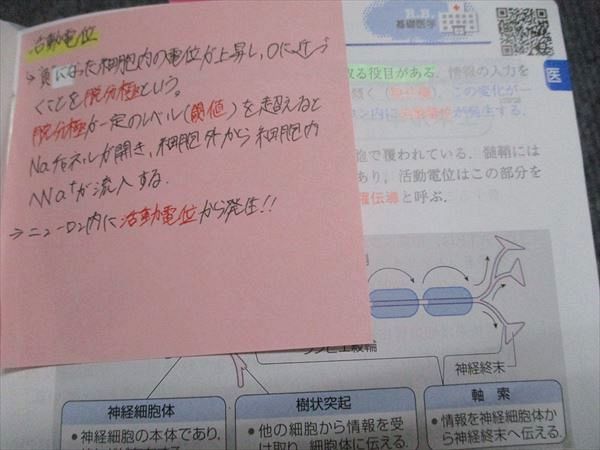 活動電位
→負になった細胞内の電位が上昇し、0に近づ
くことを脱分極という。
脱分極が一定のレベル(閾値)を超えると
Naチャネルが開き、細胞外から細胞内
へNa⁺が流入する.
⇒ニューロン内に活動電位が発生!!
基礎医学
医
取る役目がある. 情報の入力を
この変化が一
内に活動電位が発生する.
胞で覆われている. 髄鞘には
あり, 活動電位はこの部分を
躍伝導と呼ぶ.
ランビエ絞輪
神経終末
神経細胞体
● 神経細胞の本体であり,
樹状突起
● 他の細胞から情報を受
け取り, 細胞体に伝える.
軸索
● 情報を神経細胞体か
ら神経終末へ伝える.